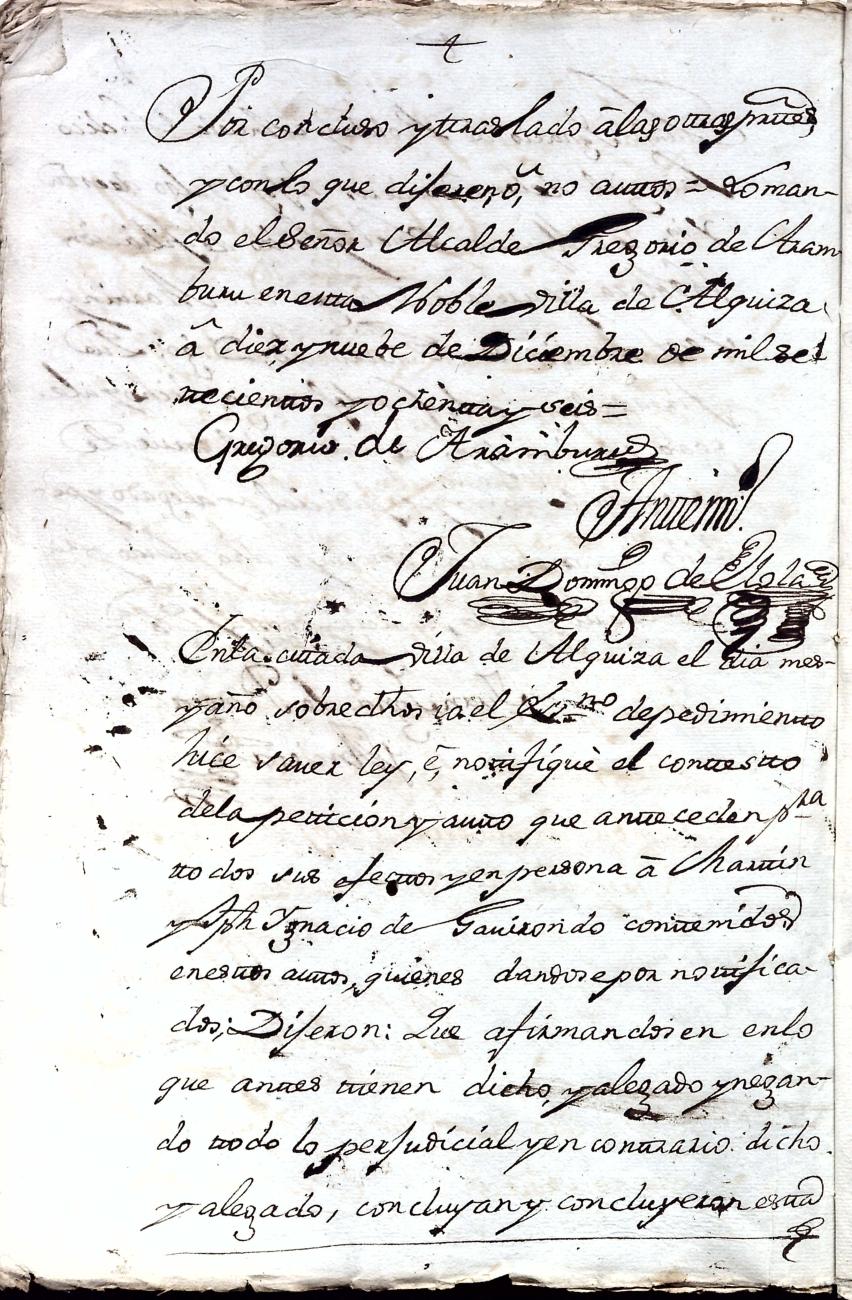 Por concluso y traslado â las otras prttes
y con lo que diferen o, no autos = Lo man-
do el Señor Alcalde Gregorio de Aram
buru en esta Noble villa de Alquiza
â diez y nuebe de Diciembre de mil set
tecientos y ochenta y seis =
Gregorio de Aramburu
Antemi
Juan Domingo de Elola
En la citada villa de Alquiza el dia mes
y año sobredhos io el Essno de pedimiento
hice saver ley, é, notifiquè el contesto
de la peticion y auto que anteceden pra
todos sus efectos y en persona â Martin
y Jph Ygnacio de Gavirondo contenidos
en estos autos, quienes dandose por notifica-
dos; Dijeron: Que afirmandosen en lo
que antes tienen dicho, y alegado y negan-
do todo lo perjudicial y en contrario dicho
y alegado, concluyan y concluyeron esta